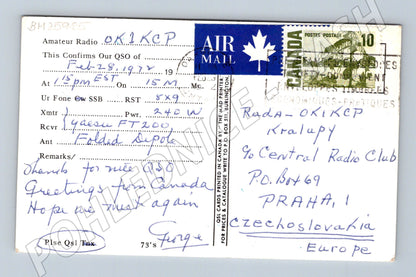 Amateur Radio OK1KCP
This Confirms Our QSO of
Feb-28, 1972 19
At 15 pm EST On 15 M. Mc.
Ur Fone SSB RST 5x9
Xmtr Pwr. 240 W
Rcvr Yaesu FT-200
Ant Folded Dipole
Remarks/
Thanks for nice QSO
Greetings from Canada
Hope we meet again
George
Plse Qsl Tnx 73's
AIR
MAIL
CANADA
POSTES POSTAGE
10
QSL CARDS PRINTED IN CANADA BY - THE MAD PRINTER
FOR PRICES & CATALOGUE WRITE TO P.O. BOX 511, BURLINGTON,
Rada - OK1KCP
Kralupy
c/o Central Radio Club
P.O. Box 69
PRAHA, 1
Czechoslovakia
Europe